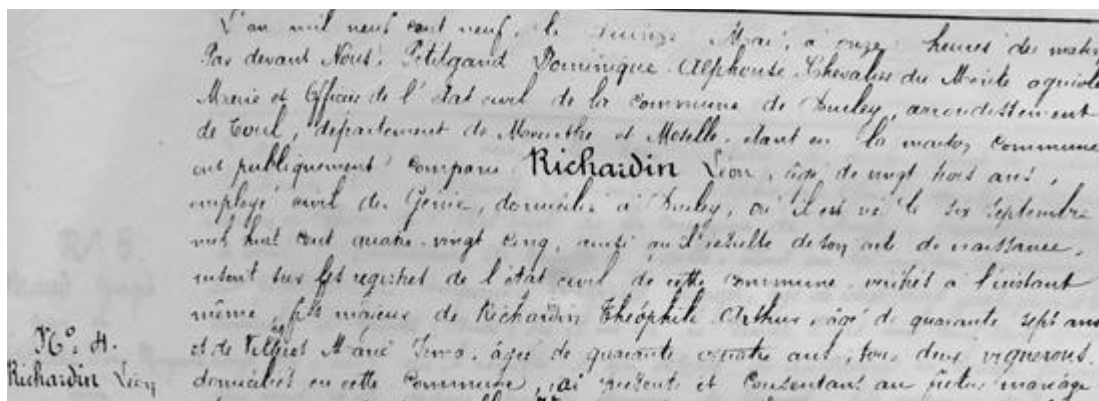 L'an mil neuf cent neuf, le quinze Mai, à onze heures du matin
Par devant Nous, Petitgand Dominique Alphonse, Chevalier du Mérite agricole
Mairie et Officier de l'état civil de la commune de Bruley, arrondissement
de Toul, département de Meurthe et Moselle, étant en la maison commune
ont publiquement comparu Richardin Léon, âgé de vingt trois ans,
employé civil du Génie, domicilié à Bruley, où il est né le six septembre
mil huit cent quatre-vingt cinq, ainsi qu'il résulte de son acte de naissance,
inscrit sur les registres de l'état civil de cette commune vérifiés à l'instant
même, fils mineur de Richardin Théophile Arthur, âgé de quarante sept ans
et de Marie âgée de quarante quatre ans, tous deux vignerons,
domiciliés en cette commune, ici présents et consentant au futur mariage
N°. 4.
Richardin Léon